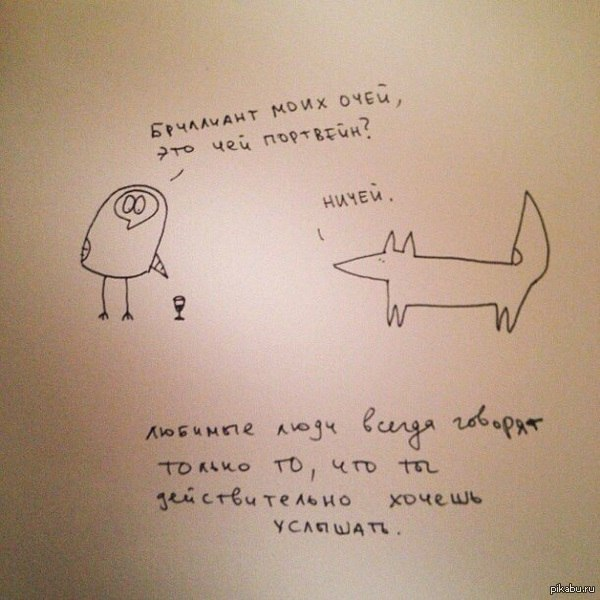 БРИЛЛИАНТ МОИХ ОЧЕЙ,
ЭТО ЧЕЙ ПОРТВЕЙН?
НИЧЕЙ.
любимые люди всегда говорят
только то, что ты
действительно хочешь
услышать.
pikabu.ru